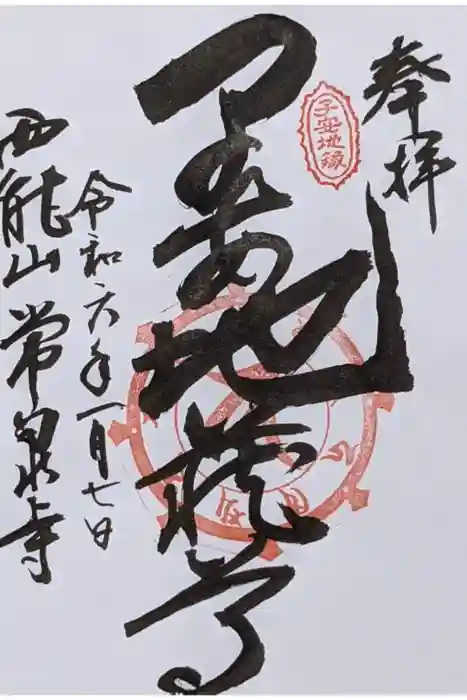 奉拝
子安地縁
子安地蔵尊
令和六年一月七日
西能山常泉寺